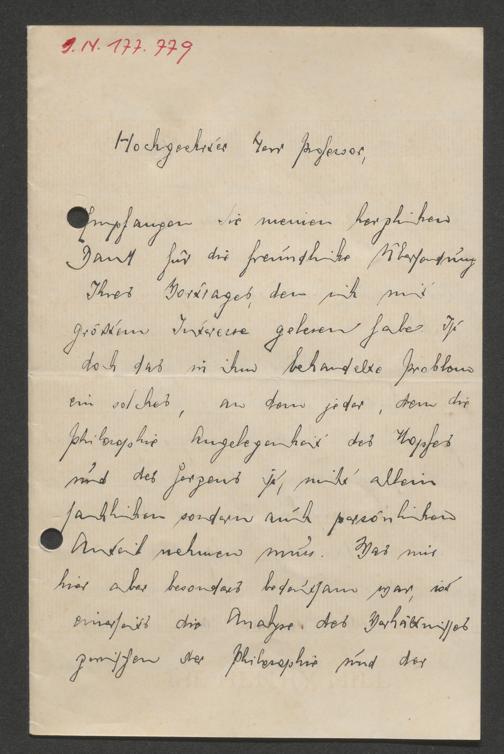 J.N. 177.779
Hochgeehrter Herr Professor,
Empfangen Sie meinen herzlichen
Dank für die freundliche Übersendung
Ihres Vortrages, den ich mit
größtem Interesse gelesen habe. Ist
doch das in ihm behandelte Problem
ein solches, an dem jeder, dem die
Philosophie Angelegenheit des Kopfes
und des Herzens ist, nicht allein
sachlichen sondern auch persönlichen
Anteil nehmen muss. Was mir
hier aber besonders bedeutsam war, ist
einerseits die Analyse des Verhältnisses
zwischen der Philosophie und der